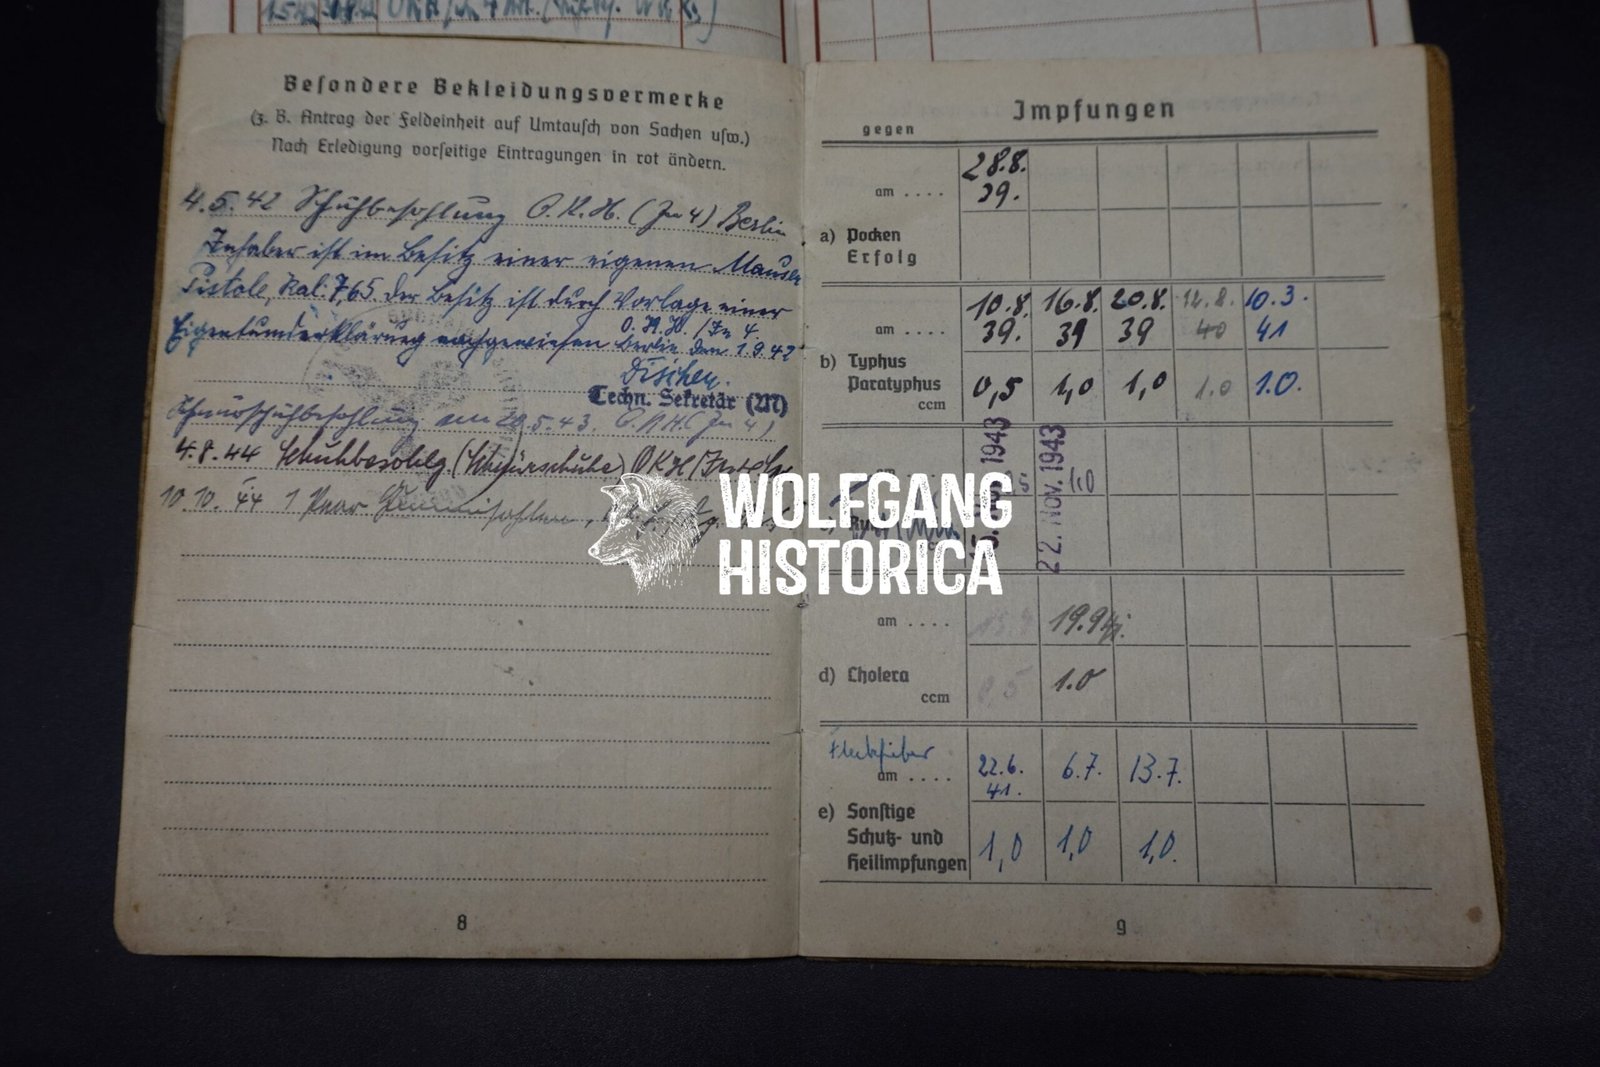 Besondere Bekleidungsvermerke
(z. B. Antrag der Feldeinheit auf Umtausch von Sachen usw.)
Nach Erledigung vorseitige Eintragungen in rot ändern.
4.5.42 Schuhbesohlung O.K.H. (Jn 4) Berlin
Inhaber ist im Besitz einer eigenen Mauser
Pistole, Kal. 7,65. Der Besitz ist durch Vorlage einer
Eigentumserklärung nachgewiesen
O.K.H. (Jn 4
Berlin, den 1.9.42
Techn. Sekretär (M)
Schnürschuhbesohlung am 20.5.43. O.K.H. (Jn 4)
4.8.44 Schuhbesohlg. (Schnürschuhe) OKH
10.10.44 1 Paar Gummisohlen,
8
Impfungen
gegen
am .... 28.8. 39.
a) Pocken
Erfolg
am .... 10.8. 39. 16.8. 39 20.8. 39 12.8. 40 10.3. 41
b) Typhus
Paratyphus
ccm 0,5 1,0 1,0 1.0 1.0.
1943 22. NOV. 1943
1.0
am .... 19.9.
d) Cholera
ccm 0,5 1.0
Fleckfieber
am .... 22.6. 41. 6.7. 13.7.
e) Sonstige
Schutz- und
Heilimpfungen 1,0 1,0 1,0.
9
WOLFGANG
HISTORICA